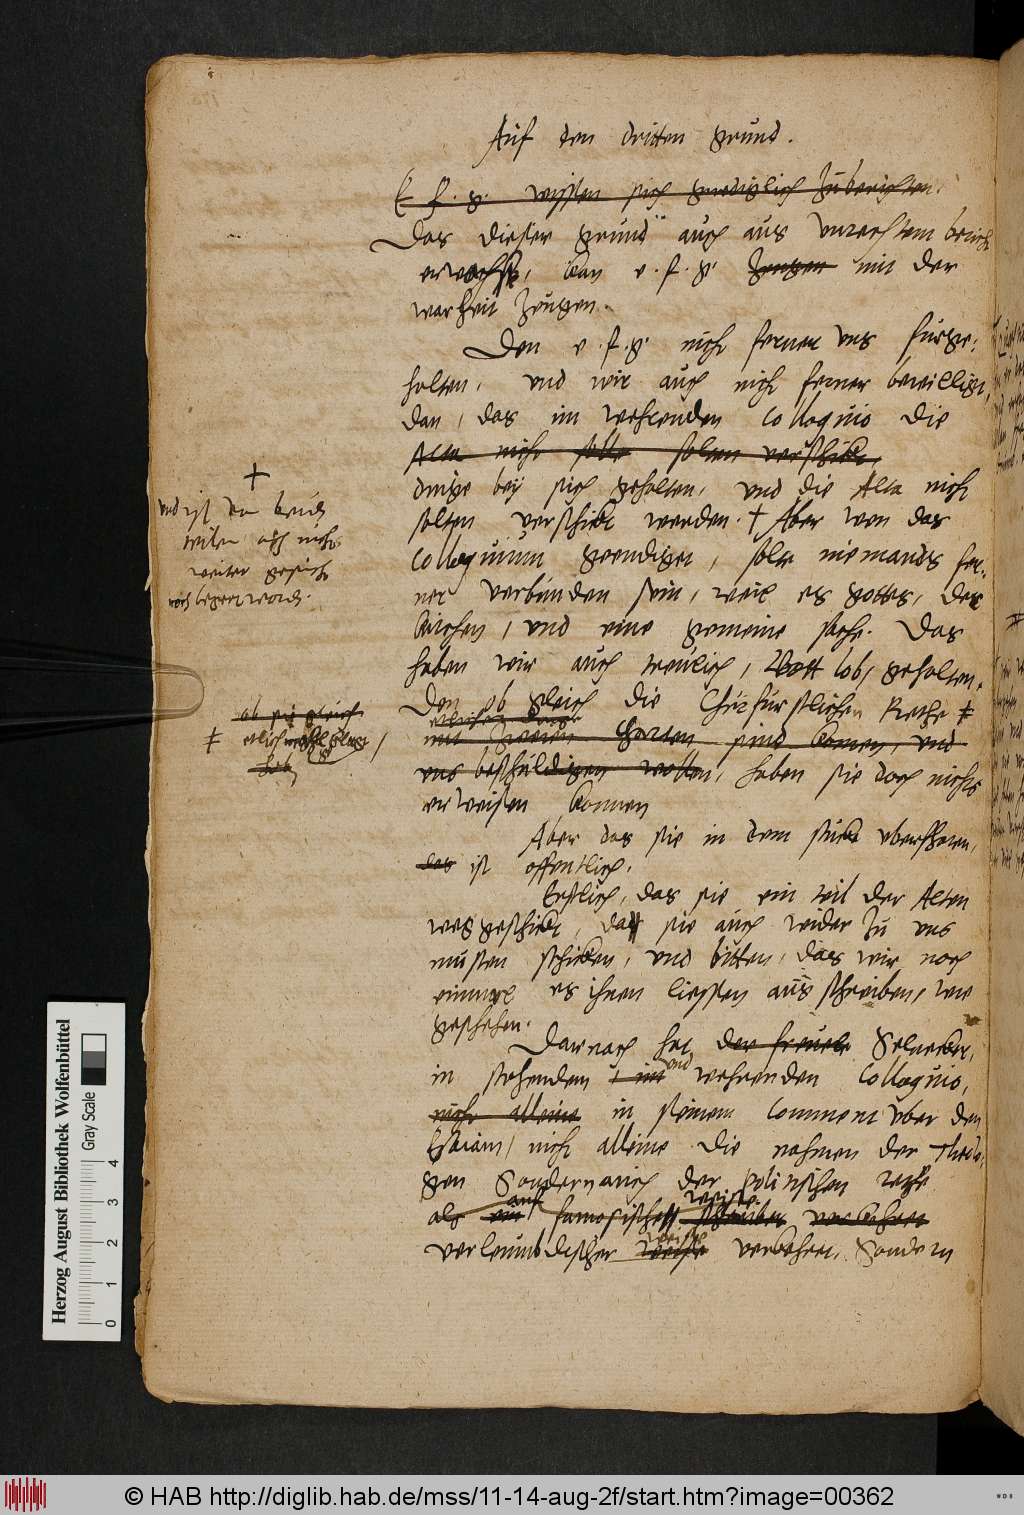 Auf den dritten grund.
E. f. g. wissen sich gnediglich zu berichten.
Das dieser grund auch aus unrechtem bericht
erwechst, kan e. f. g. zeugen mit der
warheit zeugen.
Den e. f. g. nicht ferner uns furge-
halten, und wir auch nicht ferner bewilliget,
dan, das im wehrenden Colloquio die
Acta nicht solte solten verschickt
dinge bey sich gehalten, und die Acta nicht
solten verschickt werden. † Aber wen das
Colloquium geendiget, solte niemands fer-
ner verbunden sein, weil es gottes, der
kirchen, und eine gemeine sache. Das
haben wir auch treulich, Gott lob, gehalten.
Den ob gleich die Churfurstlichen Rethe ‡
mit worten sind komen, und
uns beschuldigen wollen, haben sie doch nichts
erweisen konnen
Aber das sie in dem stuck uberfharen,
das ist offentlich.
Erstlich, das sie ein teil der Acten
weggeschickt, das sie auch wider zu uns
musten schicken, und bitten, das wir noch
einmal es ihnen liessen aus schreiben, wie
geschehen.
Darnach hat der Selnecker,
in stehendem und wehrenden Colloquio,
nicht alleine in seinem Comment uber den
Esaiam, nicht alleine die nahmen der Theolo-
gen Sondern auch der politischen rethe
als ein auf famosische weise schreiber verkehret
verleumbdischer weise verkehret, Sondern
†
und ist
weiter
‡
ob sie gleich
Herzog August Bibliothek Wolfenbüttel
Gray Scale
0 1 2 3 4
© HAB http://diglib.hab.de/mss/11-14-aug-2f/start.htm?image=00362